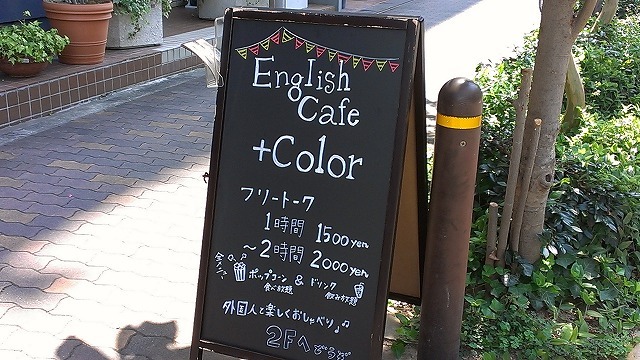 English
Cafe
+Color
フリートーク
1時間 1500yen
～2時間 2000yen
ポップコーン & ドリンク
食べ放題 飲み放題
外国人と楽しくおしゃべり♪♫
2Fへどうぞ